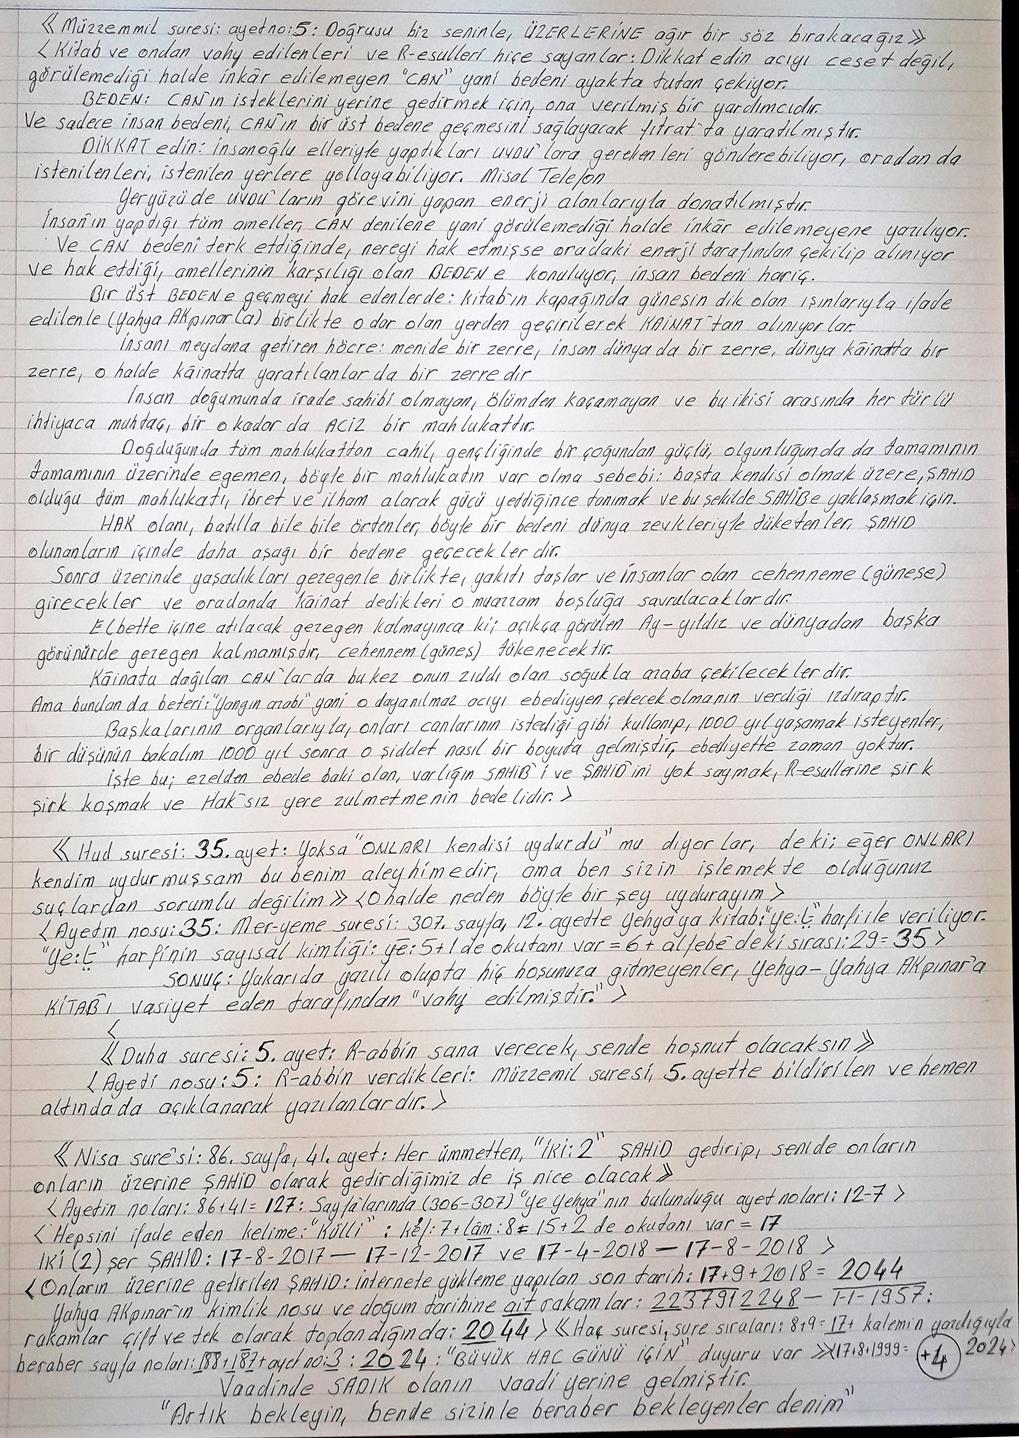 《 Müzzemmil suresi: ayet no:5: Doğrusu biz seninle, ÜZERLERİNE ağır bir söz bırakacağız》
< Kitab ve ondan vahy edilenleri ve R-esulleri hiçe sayanlar: Dikkat edin acıyı ceset değil,
görülemediği halde inkâr edilemeyen "CAN" yani bedeni ayakta tutan çekiyor.
BEDEN: CAN'ın isteklerini yerine getirmek için, ona verilmiş bir yardımcıdır.
Ve sadece insan bedeni, CAN'ın bir üst bedene geçmesini sağlayacak fıtrat'ta yaratılmıştır.
DİKKAT edin: insanoğlu elleriyle yaptıkları uydu'lara gerekenleri gönderebiliyor, oradan da
istenilenleri, istenilen yerlere yollayabiliyor. Misal Telefon
Yeryüzü de uydu'ların görevini yapan enerji alanlarıyla donatılmıştır.
İnsan'ın yaptığı tüm ameller, CAN denilene yani görülemediği halde inkâr edilemeyene yazılıyor.
Ve CAN bedeni terk ettiğinde, nereyi hak etmişse oradaki enerji tarafından çekilip alınıyor
ve hak ettiği, amellerinin karşılığı olan BEDENe konuluyor, insan bedeni hariç.
Bir üst BEDENe geçmeyi hak edenlerde: kitab'ın kapağında güneşin dik olan ışınlarıyla ifade
edilenle (Yahya AKpınar'la) birlikte o dar olan yerden geçirilerek KAİNAT'tan alınıyorlar.
İnsanı meydana getiren hücre: menide bir zerre, insan dünya da bir zerre, dünya kâinatta bir
zerre, o halde kâinatta yaratılanlar da bir zerredir
İnsan doğumunda irade sahibi olmayan, ölümden kaçamayan ve bu ikisi arasında her türlü
ihtiyaca muhtaç, bir o kadar da ACİZ bir mahlukattır.
Doğduğunda tüm mahlukattan cahil, gençliğinde bir çoğundan güçlü, olgunluğunda da tamamının
tamamının üzerinde egemen, böyle bir mahlukatın var olma sebebi: başta kendisi olmak üzere, ŞAHİD
olduğu tüm mahlukatı, ibret ve ilham alarak gücü yettiğince tanımak ve bu şekilde SAHİBe yaklaşmak için.
HAK olanı, batılla bile bile örtenler, böyle bir bedeni dünya zevkleriyle tüketenler, ŞAHİD
olunanların içinde daha aşağı bir bedene geçeceklerdir.
Sonra üzerinde yaşadıkları gezegenle birlikte, yakıtı taşlar ve insanlar olan cehenneme (güneşe)
girecekler ve oradanda kâinat dedikleri o muazzam boşluğa savrulacaklardır.
Elbette içine atılacak gezegen kalmayınca ki; açıkça görülen Ay-yıldız ve dünyadan başka
görünürde gezegen kalmamıştır, cehennem (güneş) tükenecektir.
Kâinata dağılan CAN'larda bu kez onun zıddı olan soğukla azaba çekileceklerdir.
Ama bundan da beteri: "Yangın azabı" yani o dayanılmaz acıyı ebediyyen çekecek olmanın verdiği ızdıraptır.
Başkalarının organlarıyla, onları canlarının istediği gibi kullanıp, 1000 yıl yaşamak isteyenler,
bir düşünün bakalım 1000 yıl sonra o şiddet nasıl bir boyuta gelmiştir, ebediyette zaman yoktur.
İşte bu; ezelden ebede baki olan, varlığın SAHİB'i ve ŞAHİD'ini yok saymak, R-esullerine şirk
şirk koşmak ve Hak'sız yere zulmetmenin bedelidir. >
《 Hud suresi: 35. ayet: Yoksa "ONLARI kendisi uydurdu" mu diyorlar, de ki; eğer ONLARI
kendim uydurmuşsam bu benim aleyhimedir, ama ben sizin işlemekte olduğunuz
suçlardan sorumlu değilim》 <O halde neden böyle bir şey uydurayım >
< Ayetin nosu: 35: Mer-yeme suresi: 307. sayfa, 12. ayette Yehya'ya kitab: "ye: يْ" harfi ile veriliyor.
"ye: يْ" harfi'nin sayısal kimliği: ye: 5+1 de okutanı var = 6 + alfebe'deki sırası: 29 = 35 >
SONUÇ: Yukarıda yazılı olupta hiç hoşunuza gitmeyenler, Yehya-Yahya AKpınar'a
KİTAB'ı vasiyet eden tarafından "vahy edilmiştir." >
<
《 Duha suresi: 5. ayet: R-abbin sana verecek, sende hoşnut olacaksın》
< Ayeti nosu: 5: R-abbin verdikleri: Müzzemil suresi, 5. ayette bildirilen ve hemen
altında da açıklanarak yazılanlardır. >
《 Nisa suresi: 86. sayfa, 41. ayet: Her ümmetten, "İKİ: 2" ŞAHİD getirip, senide onların
onların üzerine ŞAHİD olarak getirdiğimizde iş nice olacak》
< Ayetin noları: 86+41= 127: Sayfalarında (306-307) "Ye Yehya"nın bulunduğu ayet noları: 12-7 >
< Hepsini ifade eden kelime: "Külli" : kef: 7+lâm: 8= 15+2 de okutanı var = 17
İKİ (2) şer ŞAHİD: 17-8-2017 — 17-12-2017 ve 17-4-2018 — 17-8-2018 >
< Onların üzerine getirilen ŞAHİD: internete yükleme yapılan son tarih: 17+9+2018 = 2044
Yahya AKpınar'ın kimlik nosu ve doğum tarihine ait rakamlar: 2237912248 — 1-1-1957:
rakamlar çift ve tek olarak toplandığında: 2044 > 《 Haç suresi, sure sıraları: 8+9= 17+ kalemin yazdığıyla
beraber sayfa noları: 188+187+ayet no: 3: 2024: "BÜYÜK HAC GÜNÜ İÇİN" duyuru var 》 <17+8+1999= +4 2024>
Vaadinde SADIK olanın vaadi yerine gelmiştir.
"Artık bekleyin, bende sizinle beraber bekleyenlerdenim"